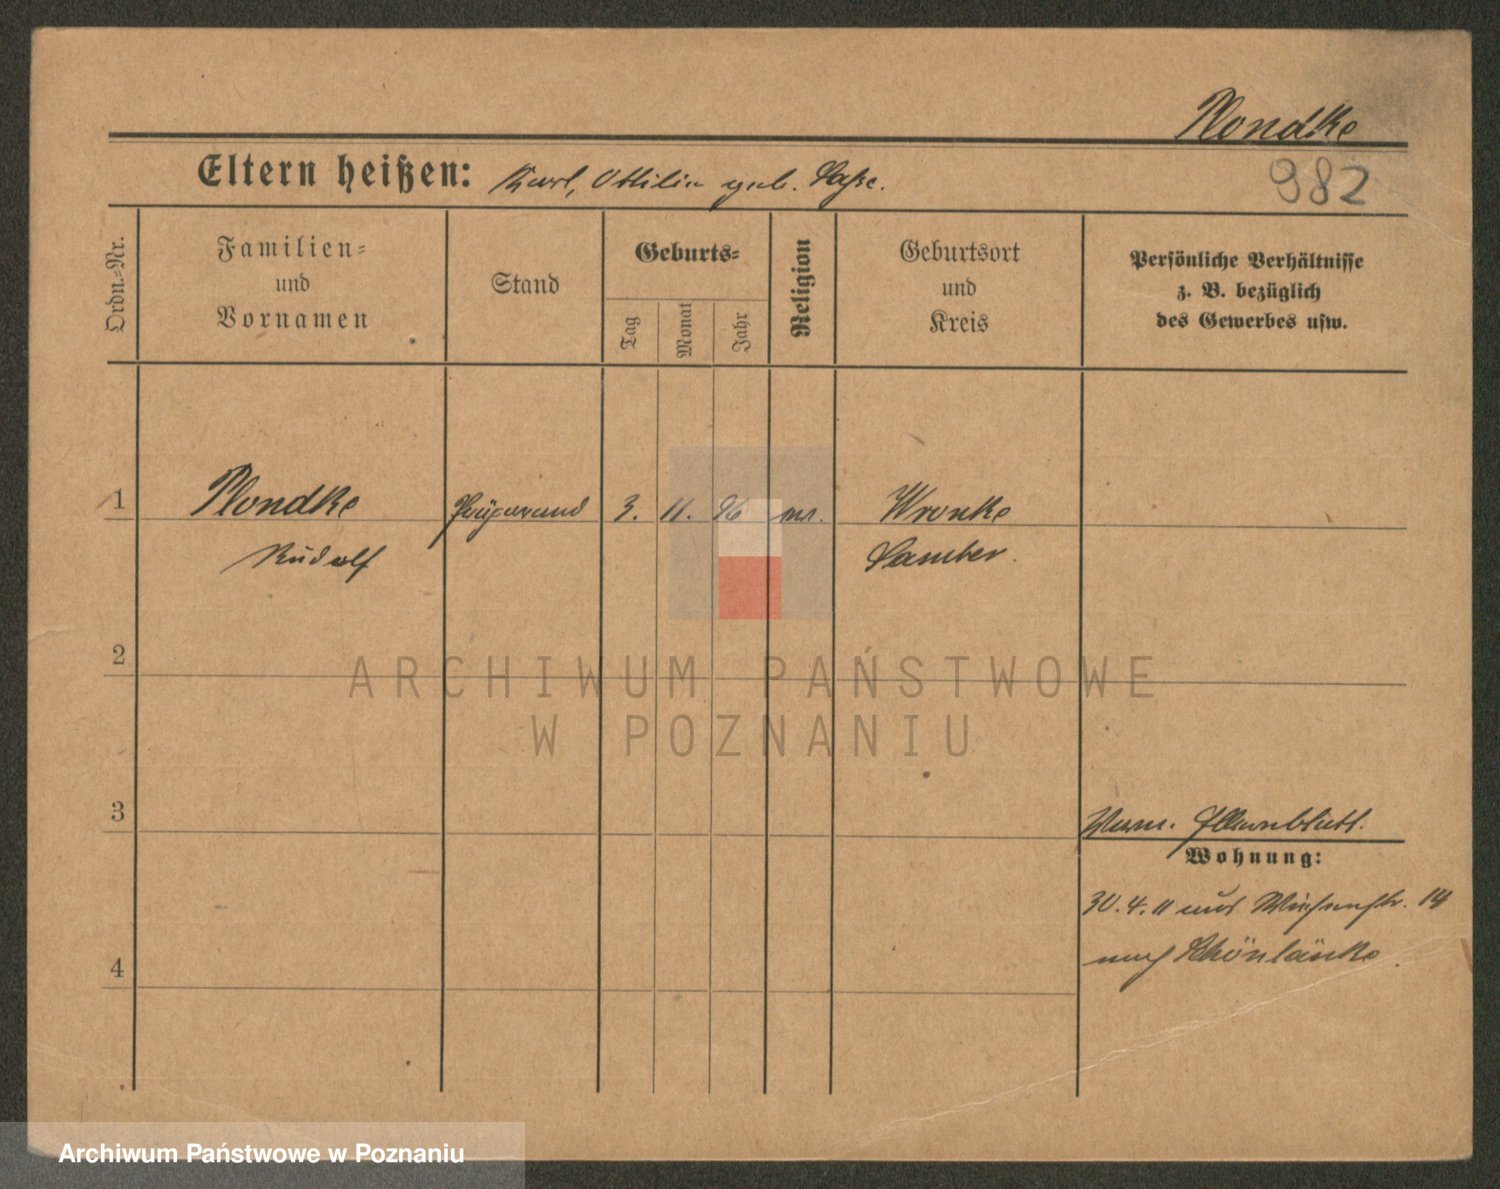 Plondke
Eltern heißen: Karl, Ottilie geb. Saße.
982
Ordn.=Nr.
Familien=
und
Vornamen
Stand
Geburts=
Tag
Monat
Jahr
Religion
Geburtsort
und
Kreis
Persönliche Verhältnisse
z. B. bezüglich
des Gewerbes usw.
1
Plondke
Präparand
3. 11. 96
Wronke
Rudolf
Samter.
ARCHIWUM PAŃSTWOWE
W POZNANIU
2
3
4
Elternblatt.
Wohnung:
30. 4. 11 aus Wiesenstr. 14
nach Schönlanke.
Archiwum Państwowe w Poznaniu